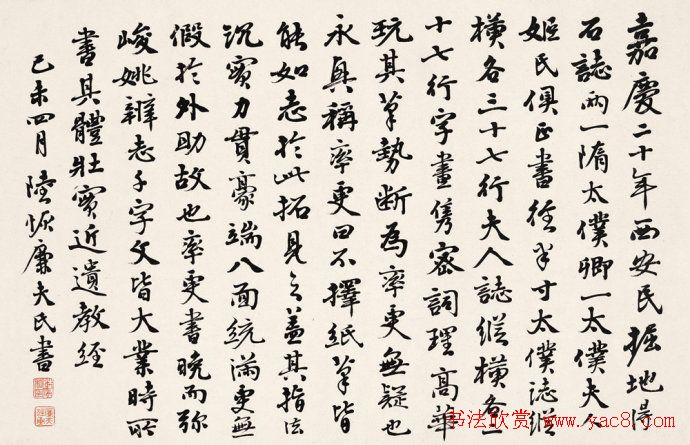 嘉慶二十年西安民掘地得
石誌兩一隋太僕卿一太僕夫人
姬氏俱正書徑半寸太僕誌縱
橫各三十七行夫人誌縱橫各
十七行字畫雋密詞理高華
玩其筆勢斷為率更無疑也
永真稱率更曰不擇紙筆皆
能如志於此拓見之蓋其指法
沉實力貫豪端八面統滿更無
假於外助故也率更書晚而彌
峻姚辯志千字文皆大業時所
書其體壯實近遺教經
己未四月陸恢廉夫氏書
书法欣赏 www.yac8.com